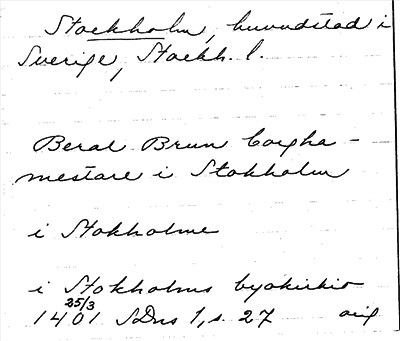 Stockholm, huvudstad i
Sverige, Stockh. l.
Beral Brun borgha-
mestare i Stokholm
i Stokholme
i Stokholms byakirkio
25/3
1401 SDns 1, s. 27 orig